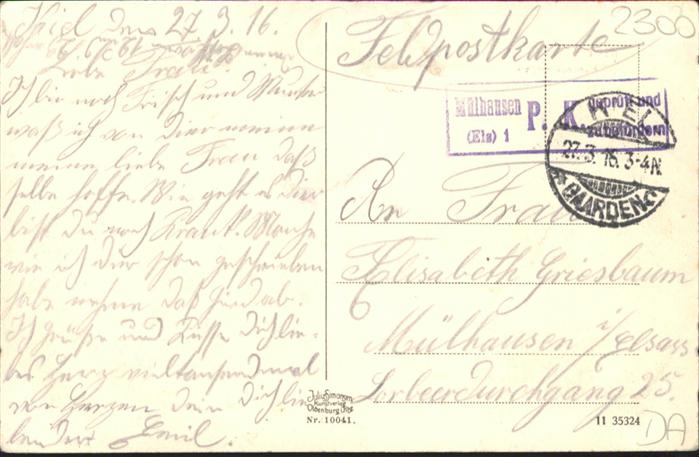 Kiel den 27.3.16.
Liebe Frau.
Ich bin noch Frisch und Munter
was ich von dier meine
meine liebe Frau das
selbe hoffe. Wie geht es dier
bist du noch Krank. Mache
wie ich dier schon geschrieben
habe nehme das Kind ab.
Ich grüße und Küsse dich lie-
bes Herz vieltausendmal
von Herzen dein dich lie-
bender Emil.
Feldpostkarte
2300
Mülhausen
(Els) 1
P. K.
geprüft und
zu befördern
KIEL
27.3.16. 3-4N.
GAARDEN
An Frau
Elisabeth Griesbaum
Mülhausen i/Elsass
Lorbeerdurchgang 25.
Jul. Simonsen
Kunstverlag
Oldenburg i/Hol.
Nr. 10041.
11 35324
DA